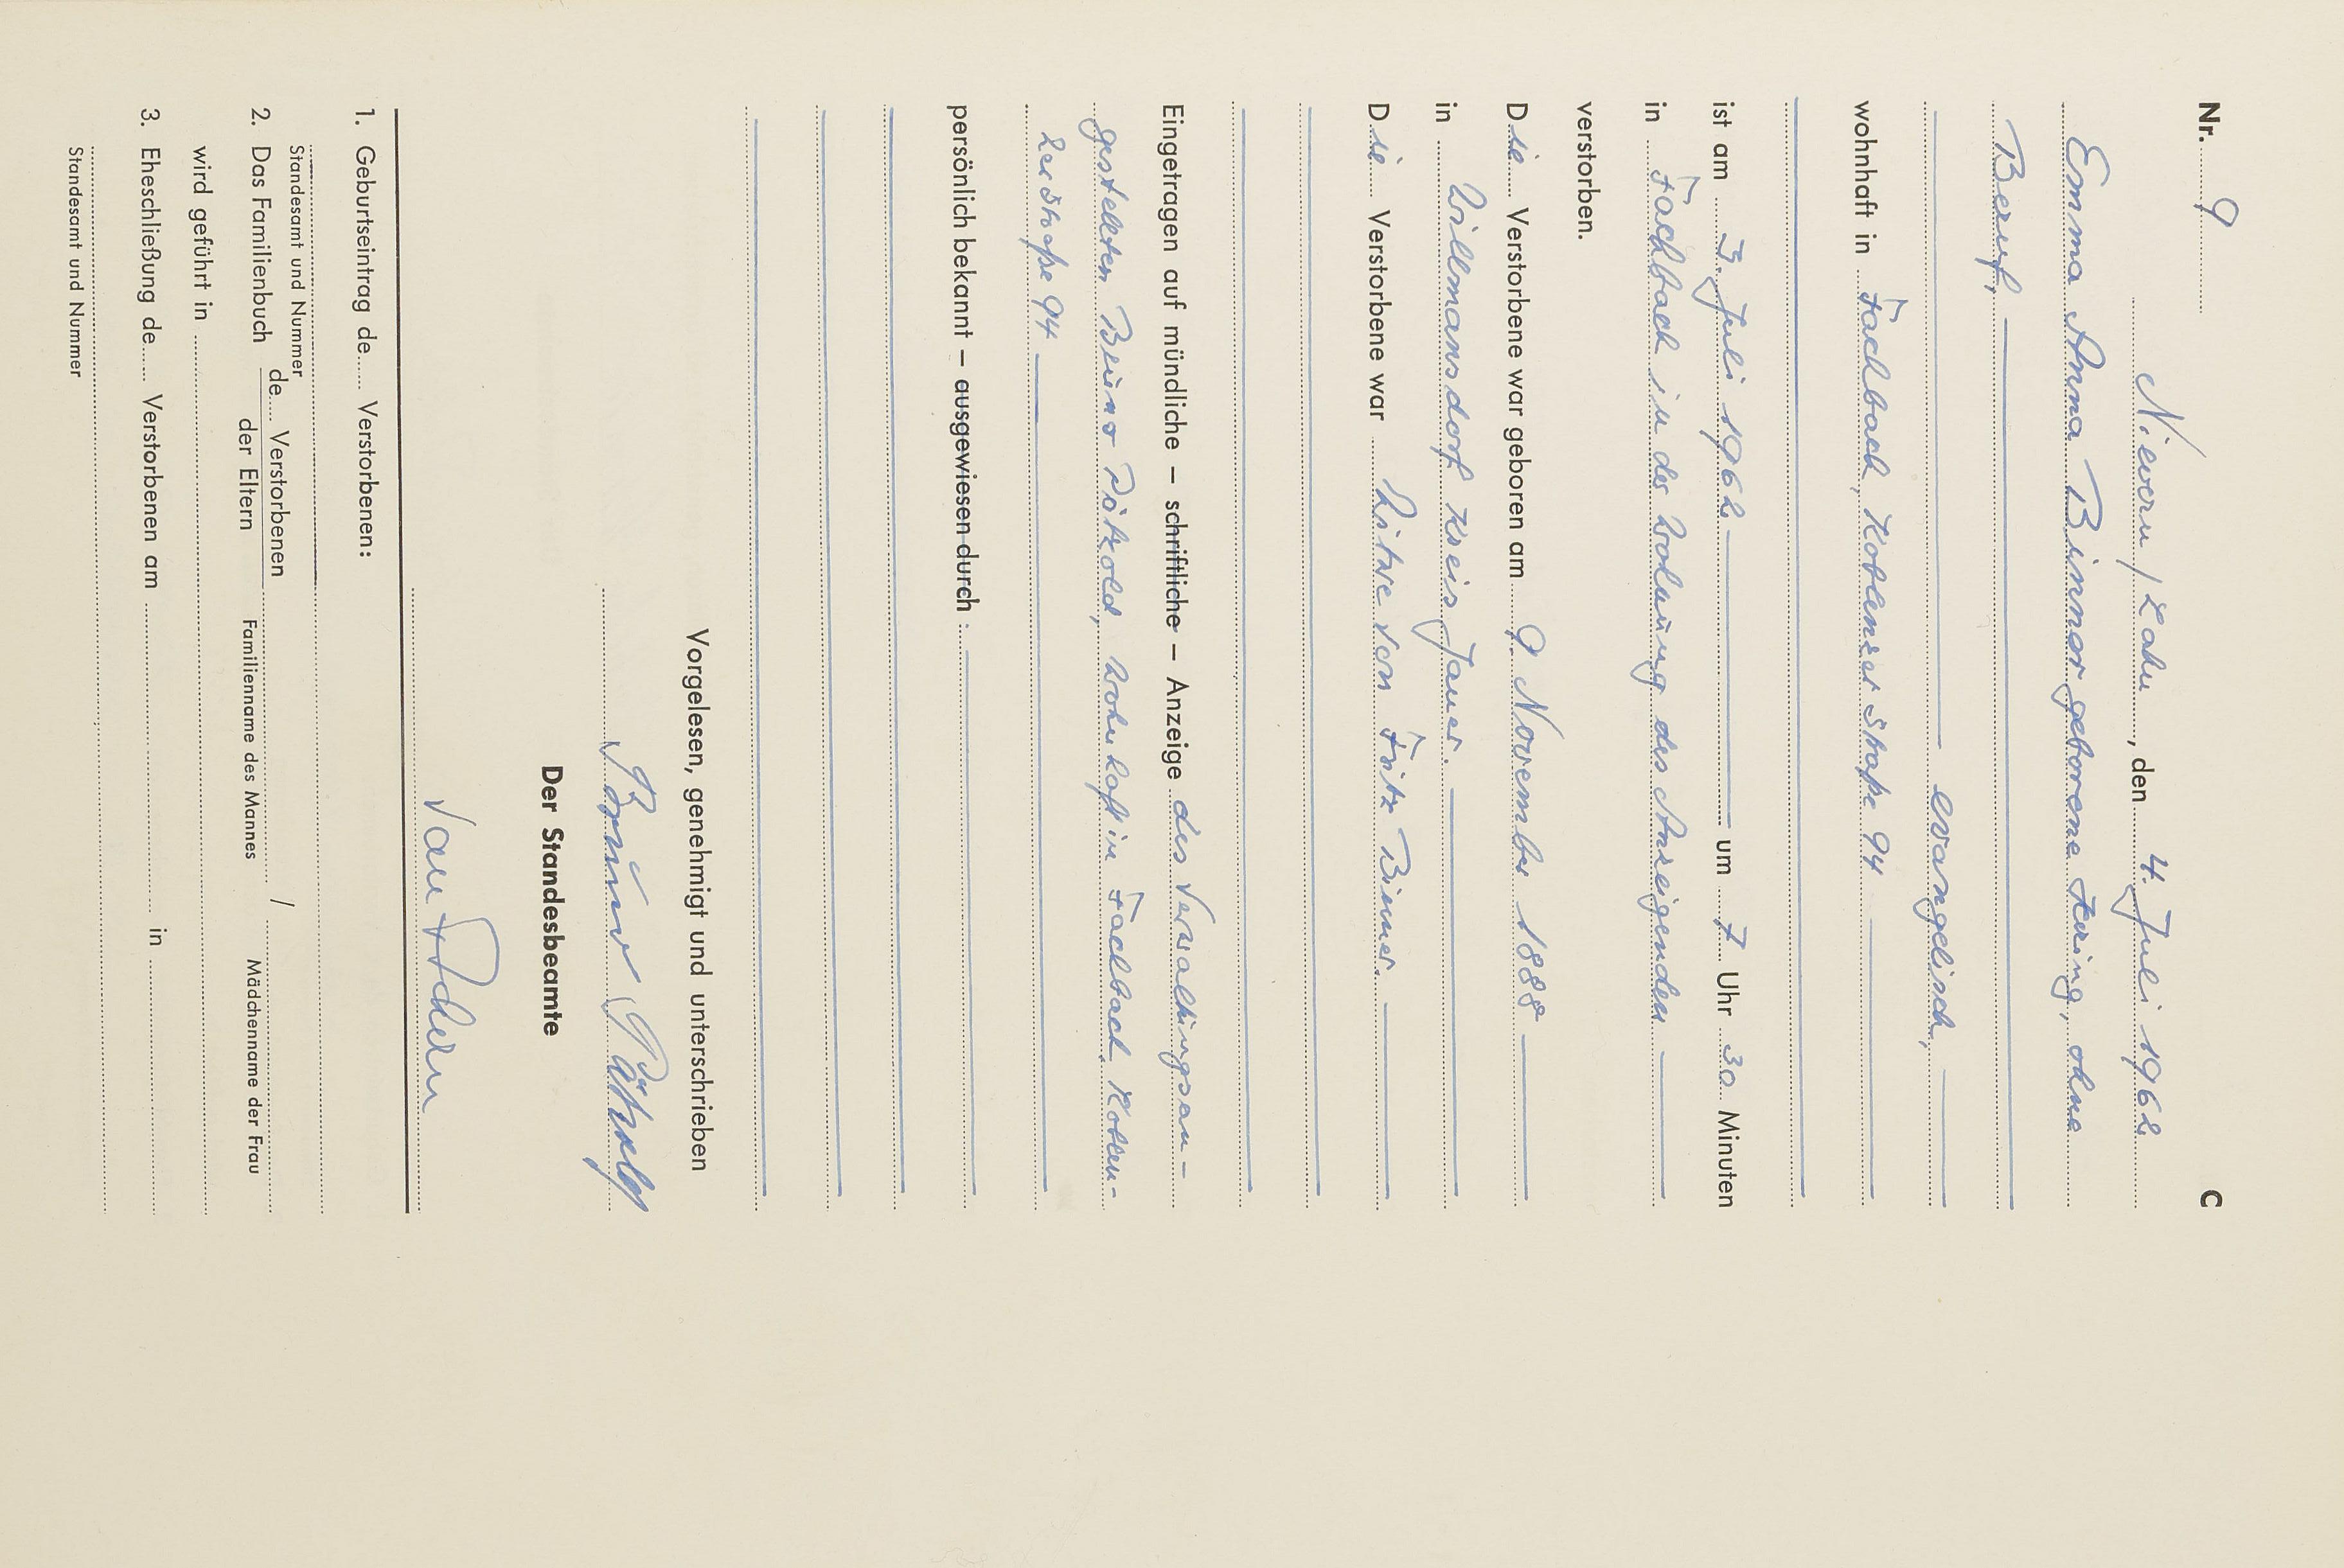 Nr. 9 C
Nievern/Lahn, den 4. Juli 1962
Emma Anna Binner geborene Hering, ohne
Beruf,
evangelisch,
wohnhaft in Fachbach, Koblenzer Straße 94
ist am 3. Juli 1962 um 7 Uhr 30 Minuten
in Fachbach in der Wohnung des Anzeigenden
verstorben.
Die Verstorbene war geboren am 9. November 1888
in Willmannsdorf Kreis Jauer.
Die Verstorbene war Witwe von Fritz Binner.
Eingetragen auf mündliche – schriftliche – Anzeige des Verwaltungsan-
gestellten Bruno Pätzold, wohnhaft in Fachbach, Koblen-
zer Straße 94
persönlich bekannt – ausgewiesen durch :
Vorgelesen, genehmigt und unterschrieben
Bruno Pätzold
Der Standesbeamte
1. Geburtseintrag de Verstorbenen:
Standesamt und Nummer
2. Das Familienbuch de Verstorbenen /
der Eltern Familienname des Mannes Mädchenname der Frau
wird geführt in
3. Eheschließung de Verstorbenen am in
Standesamt und Nummer